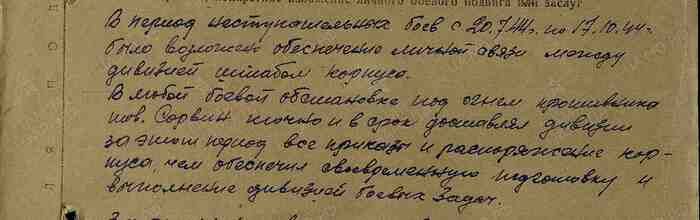 личного боевого подвига или заслуг
В период наступательных боев с 20.7.44г. по 17.10.44г.
было возложено обеспечение личной связи между
дивизией штабом корпуса.
В любой боевой обстановке под огнем противника
тов. Сорвин точно и в срок доставлял дивизии
за этот период все приказы и распоряжение кор-
пуса, чем обеспечил своевременную подготовку и
выполнение дивизией боевых задач.